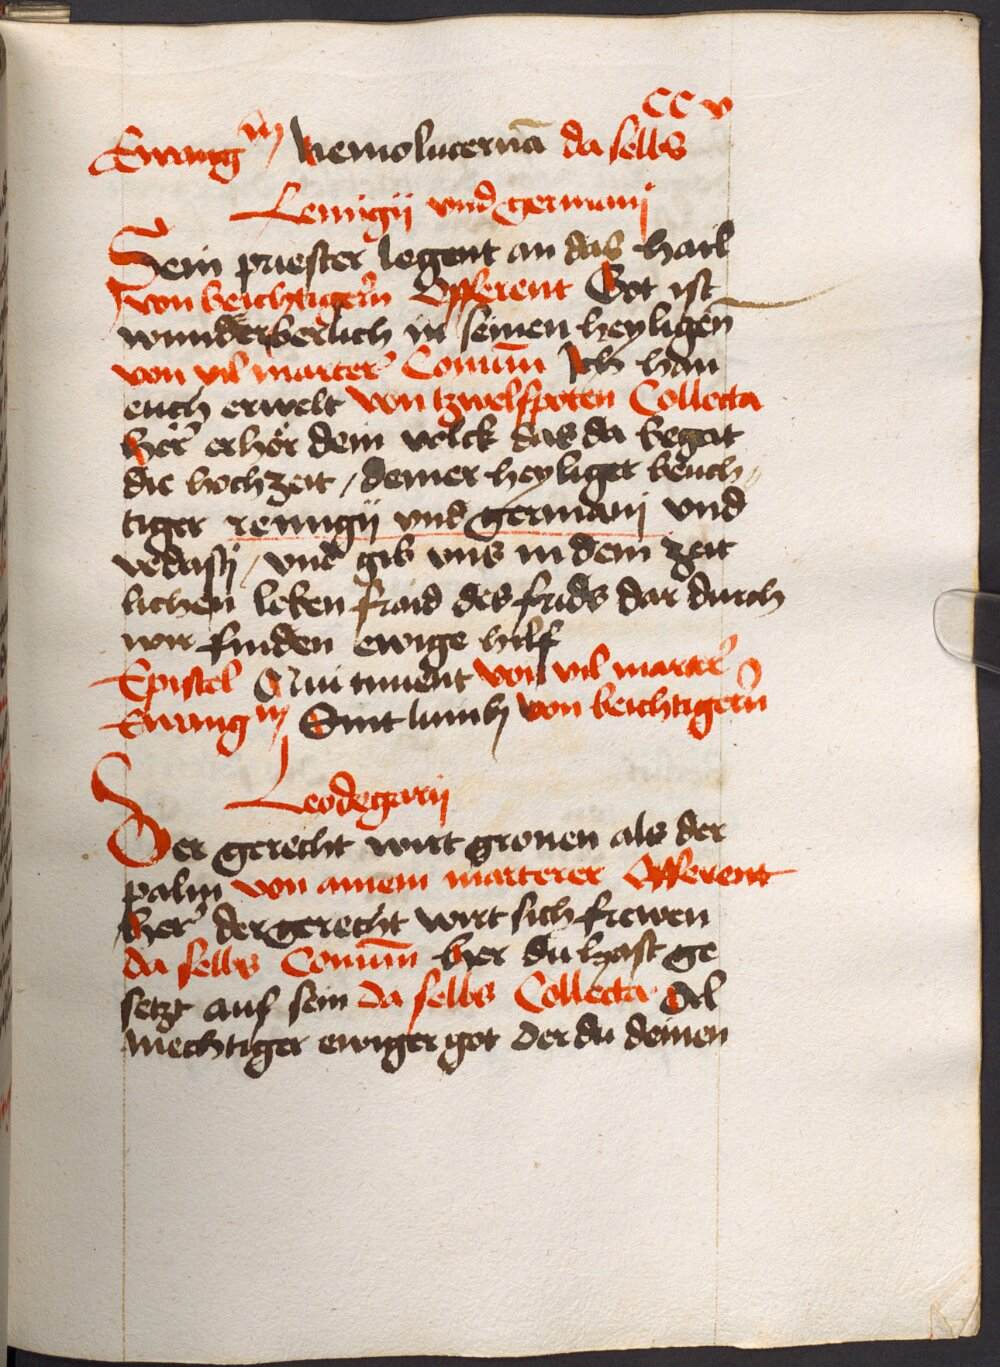 CC v
Ewangm Nemo lucernā da selbs
Remigij vnd germanj
Dein priester legent an das hail
von beichtigern Offerent Got ist
wunderberlich in seinen heyligen
von vil marter Comūm Ich han
euch erwelt von tzwelfpoten Collecta
Her erhör dein volck das da begat
die hochzeit / deiner heyliger beich
tiger remigij vnd germanj vnd
vedastj / vnd gib vns in dem zeit
lichen leben fraid des frids dar durch
wir finden ewige hilf
Epistel Qui timent von vil marter
Ewangm Sint lumbj von beichtigern
Leodegarij
Der gerecht wirt gronen als der
palm von ainem marterer Offerent
Her der gerecht wirt sich frewen
da selbs Comūm Her du hast ge
setzt auf sein da selbs Collecta Al
mechtiger ewiger got der du deinen